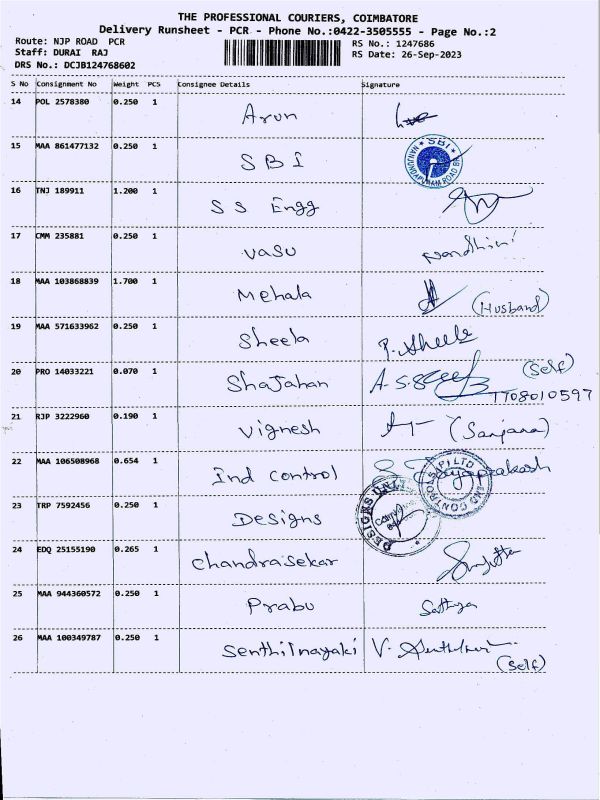 THE PROFESSIONAL COURIERS, COIMBATORE
Delivery Runsheet - PCR - Phone No.:0422-3505555 - Page No.:2
Route: NJP ROAD PCR
RS No.: 1247686
Staff: DURAI RAJ
RS Date: 26-Sep-2023
DRS No.: DCJB124768602
S No Consignment No Weight PCS Consignee Details Signature
14 POL 2578380 0.250 1 Arun
15 MAA 861477132 0.250 1 SBI SBI NANJUNDAPURAM ROAD
16 TNJ 189911 1.200 1 S S Engg
17 CMM 235881 0.250 1 vasu Nandhini
18 MAA 103868839 1.700 1 Mehala (Husband)
19 MAA 571633962 0.250 1 Sheela P. Sheela
20 PRO 14033221 0.070 1 Shajahan (Self)
7708010597
21 RJP 3222960 0.190 1 Vignesh (Sanjana)
22 MAA 106508968 0.654 1 Ind control
23 TRP 7592456 0.250 1 Designs
24 EDQ 25155190 0.265 1 Chandrasekar
25 MAA 944360572 0.250 1 Prabu Sathya
26 MAA 100349787 0.250 1 Senthilnayaki
(Self)